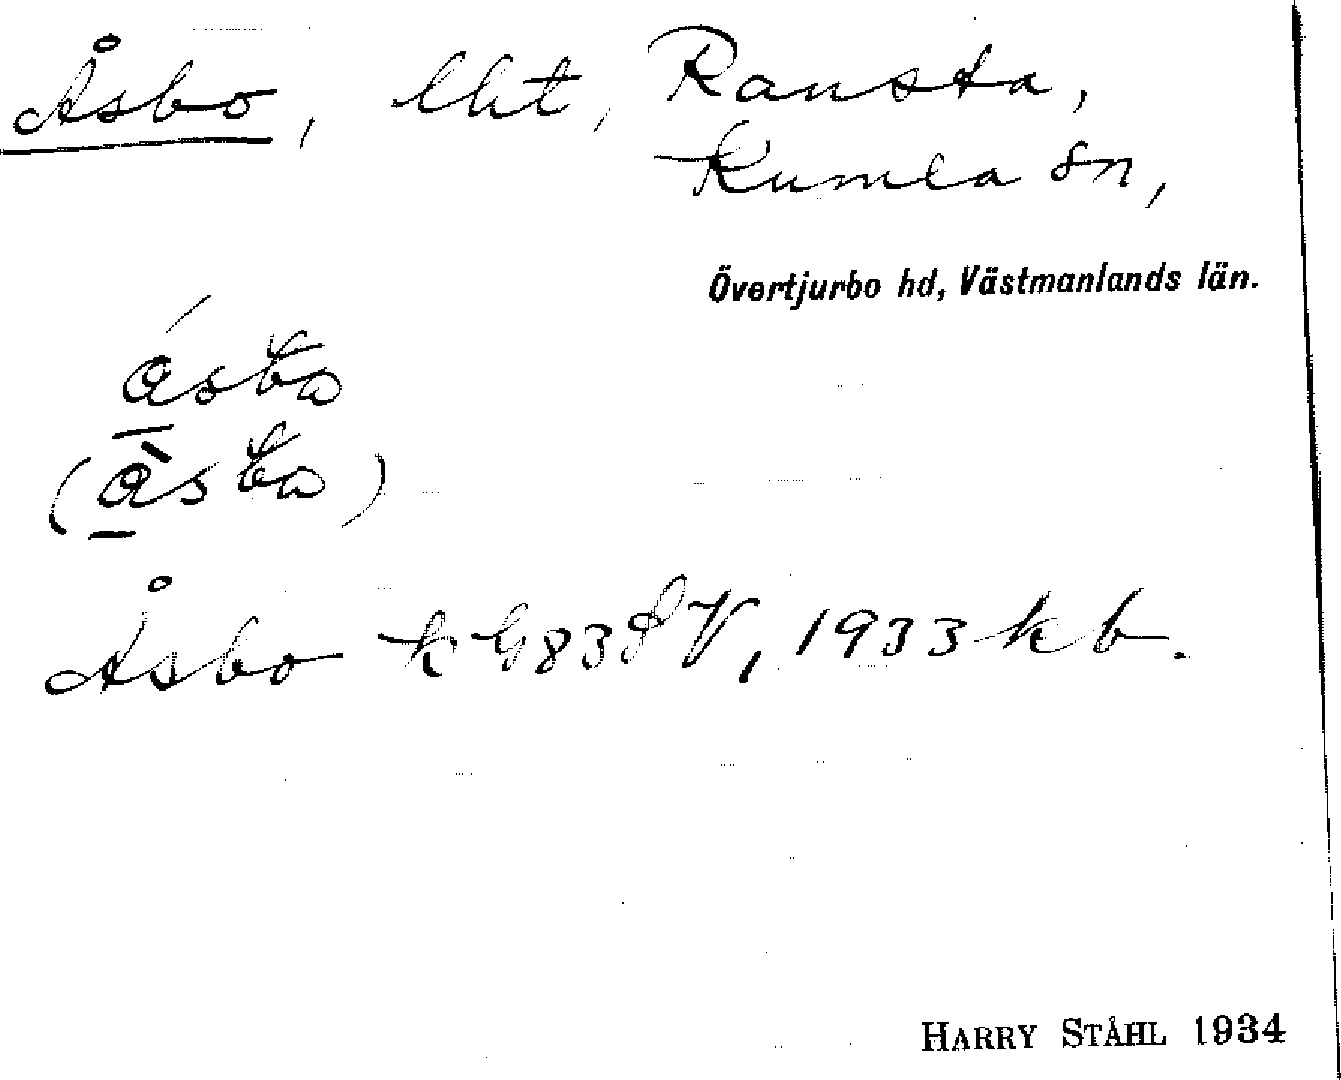 Åsbo, lht, Ransta,
Kumla sn,
Övertjurbo hd, Västmanlands län.
Åsbo k G83SV, 1933 kb.
HARRY STÅHL 1934